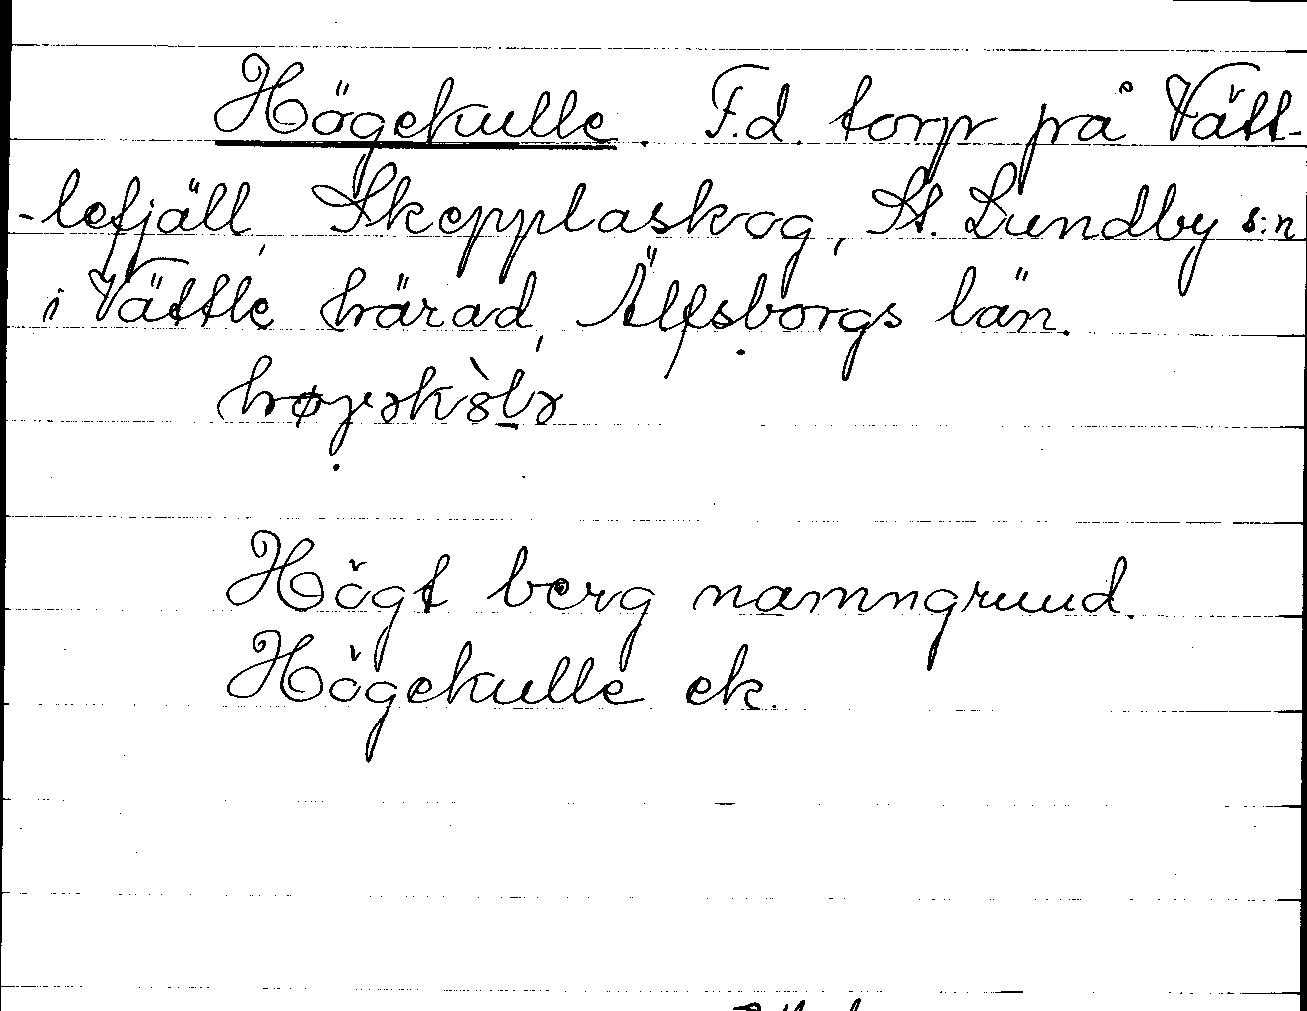 Högekulle. F.d. torp på Vätt-
-lefjäll, Skepplaskog, St. Lundby s:n
i Vättle härad, Älfsborgs län.
Högt berg namngrund.
Högekulle ek.